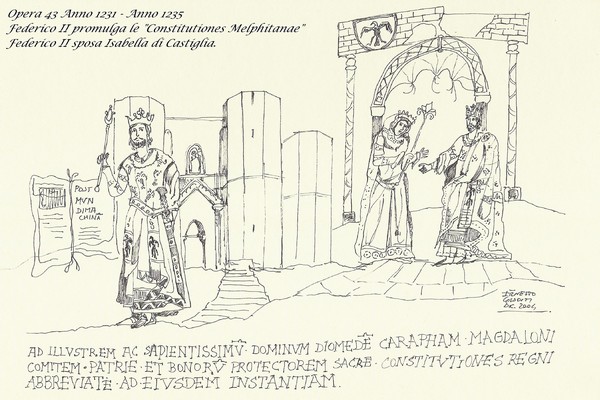 Opera 43 Anno 1231 - Anno 1235
Federico II promulga le "Constitutiones Melphitanae"
Federico II sposa Isabella di Castiglia.
POST
MVN
DIMA
CHINĀ
DIC. 2006
AD ILLVSTREM AC SAPIENTISSIMṼ · DOMINVM DIOMEDẼ CARAPHAM · MAGDALONI
COMITEM · PATRIE · ET BONORṼ PROTECTOREM SACRE · CONSTITVTIONES REGNI
ABBREVIATE · AD EIVSDEM INSTANTIAM.